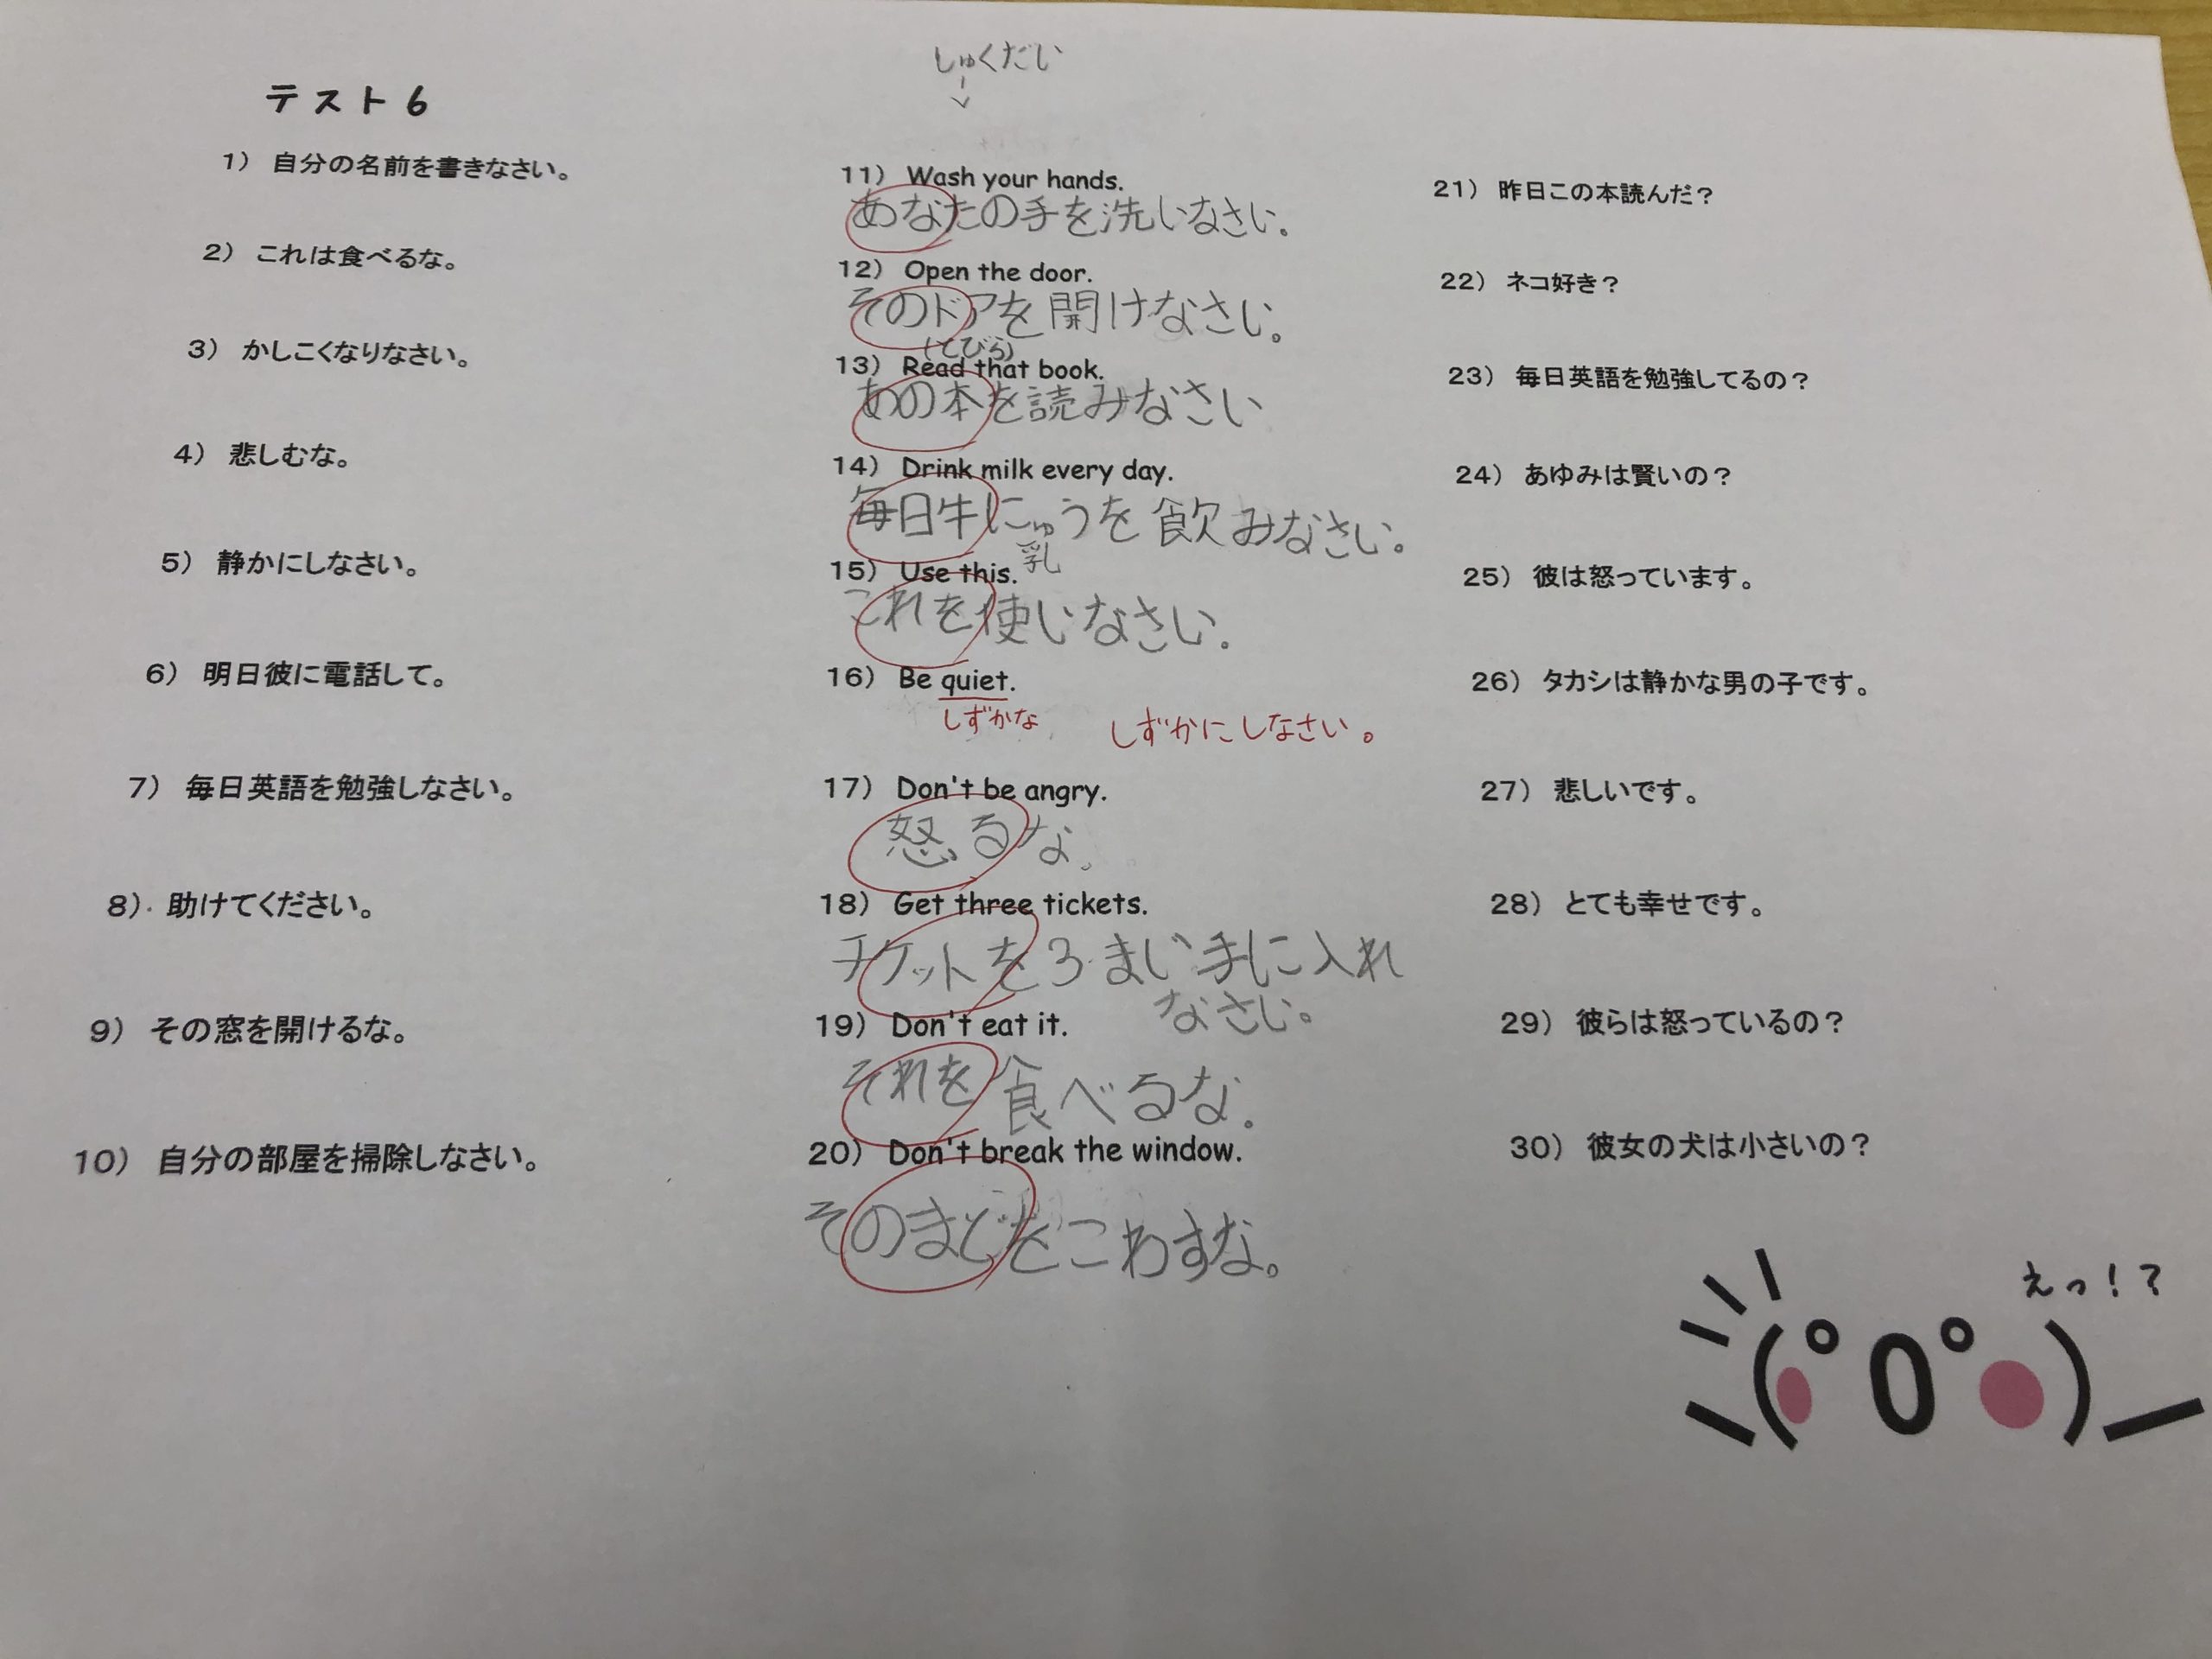 しゅくだい
テスト6
1) 自分の名前を書きなさい。
2) これは食べるな。
3) かしこくなりなさい。
4) 悲しむな。
5) 静かにしなさい。
6) 明日彼に電話して。
7) 毎日英語を勉強しなさい。
8) 助けてください。
9) その窓を開けるな。
10) 自分の部屋を掃除しなさい。
11) Wash your hands.
あなたの手を洗いなさい。
12) Open the door.
そのドアを開けなさい。
(とびら)
13) Read that book.
あの本を読みなさい
14) Drink milk every day.
毎日牛にゅうを飲みなさい。
乳
15) Use this.
これを使いなさい。
16) Be quiet.
しずかな
しずかにしなさい。
17) Don't be angry.
怒るな。
18) Get three tickets.
チケットを3まい手に入れ
なさい。
19) Don't eat it.
それを食べるな。
20) Don't break the window.
そのまどをこわすな。
21) 昨日この本読んだ？
22) ネコ好き？
23) 毎日英語を勉強してるの？
24) あゆみは賢いの？
25) 彼は怒っています。
26) タカシは静かな男の子です。
27) 悲しいです。
28) とても幸せです。
29) 彼らは怒っているの？
30) 彼女の犬は小さいの？
えっ！？
(°0°)